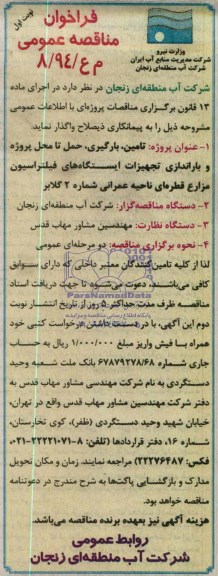 نوبت اول
فراخوان
مناقصه عمومی
م ع/۸/۹۴
وزارت نیرو
شرکت مدیریت منابع آب ایران
شرکت آب منطقه‌ای زنجان
شرکت آب منطقه‌ای زنجان در نظر دارد در اجرای ماده
۱۳ قانون برگزاری مناقصات پروژه‌ای با اطلاعات عمومی
مشروحه ذیل را به پیمانکاری ذیصلاح واگذار نماید
۱- عنوان پروژه: تامین، بارگیری، حمل تا محل پروژه
و باراندازی تجهیزات ایستگاه‌های فیلتراسیون
مزارع قطره‌ای ناحیه عمرانی شماره ۲ گلابر
۲- دستگاه مناقصه‌گزار: شرکت آب منطقه‌ای زنجان
۳- دستگاه نظارت: مهندسین مشاور مهاب قدس
۴- نحوه برگزاری مناقصه: دو مرحله‌ای عمومی
لذا از کلیه تامین کنندگان معتبر داخلی که دارای سوابق
کافی می‌باشند، دعوت می‌شود تا جهت دریافت اسناد
مناقصه ظرف مدت حداکثر ۵ روز از تاریخ انتشار نوبت
دوم این آگهی، با در دست داشتن درخواست کتبی خود
همراه با فیش واریز مبلغ ۱/۰۰۰/۰۰۰ ریال به حساب
جاری شماره ۶۷۸۷۹۲۷۸/۶۸ بانک ملت شعبه وحید
دستگردی به نام شرکت مهندسی مشاور مهاب قدس به
دفتر شرکت مهندسین مشاور مهاب قدس واقع در تهران،
خیابان شهید وحید دستگردی (ظفر)، کوی تخارستان،
شماره ۱۶، دفتر قراردادها (تلفن: ۸-۲۲۲۲۱۰۷۱-۰۲۱،
فکس: ۲۲۲۷۶۴۸۷) مراجعه نمایند. زمان و مکان تحویل
مدارک و بازگشایی پاکت‌ها به شرح مندرج در دعوتنامه
مناقصه خواهد بود.
هزینه آگهی نیز بعهده برنده مناقصه می‌باشد.
روابط عمومی
شرکت آب منطقه‌ای زنجان
ParsNamadData